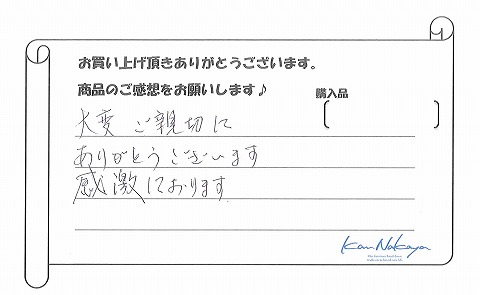 お買い上げ頂きありがとうございます。
商品のご感想をお願いします♪
購入品
大変ご親切に
ありがとうございます
感激しております
Kan Nakaya